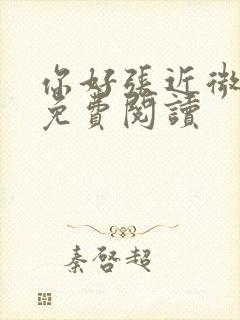 你好張近微
免費閱讀
秦啓超